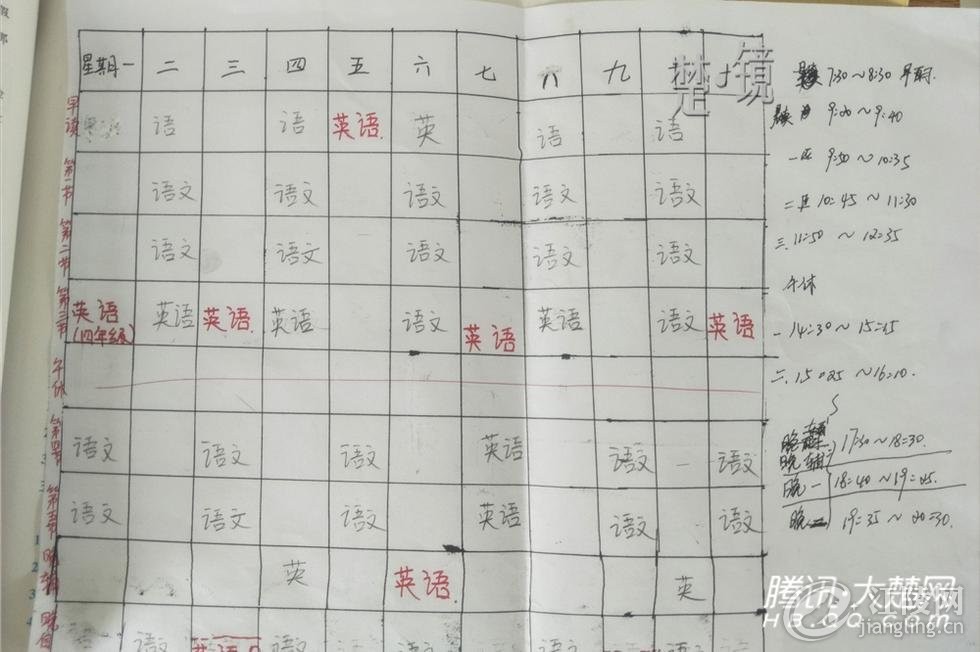 星期一 二 三 四 五 六 七 八 九 十
早读 语 语 英语 英 语 语
第一节 语文 语文 语文 语文 语文
第二节 语文 语文 语文 语文 语文
第三节 英语 (四年级) 英语 英语 英语 语文 英语 英语 语文 英语
午休
第四节 语文 语文 语文 英语 语文 语文
第五节 语文 语文 语文 英语 语文 语文
晚辅 英 英语 英
晚自 语文 英语 语文 语 语文 语文
7:30~8:30
9:00~9:40
一 9:50~10:35
二 10:45~11:30
三 11:50~12:35
午休
一 14:30~15:15
二 15:25~16:10
晚辅 17:30~18:30
晚一 18:40~19:25
晚二 19:35~20:30
楚镜
腾讯·大楚网
HB.QQ.COM
江陵网
jiangling.cn